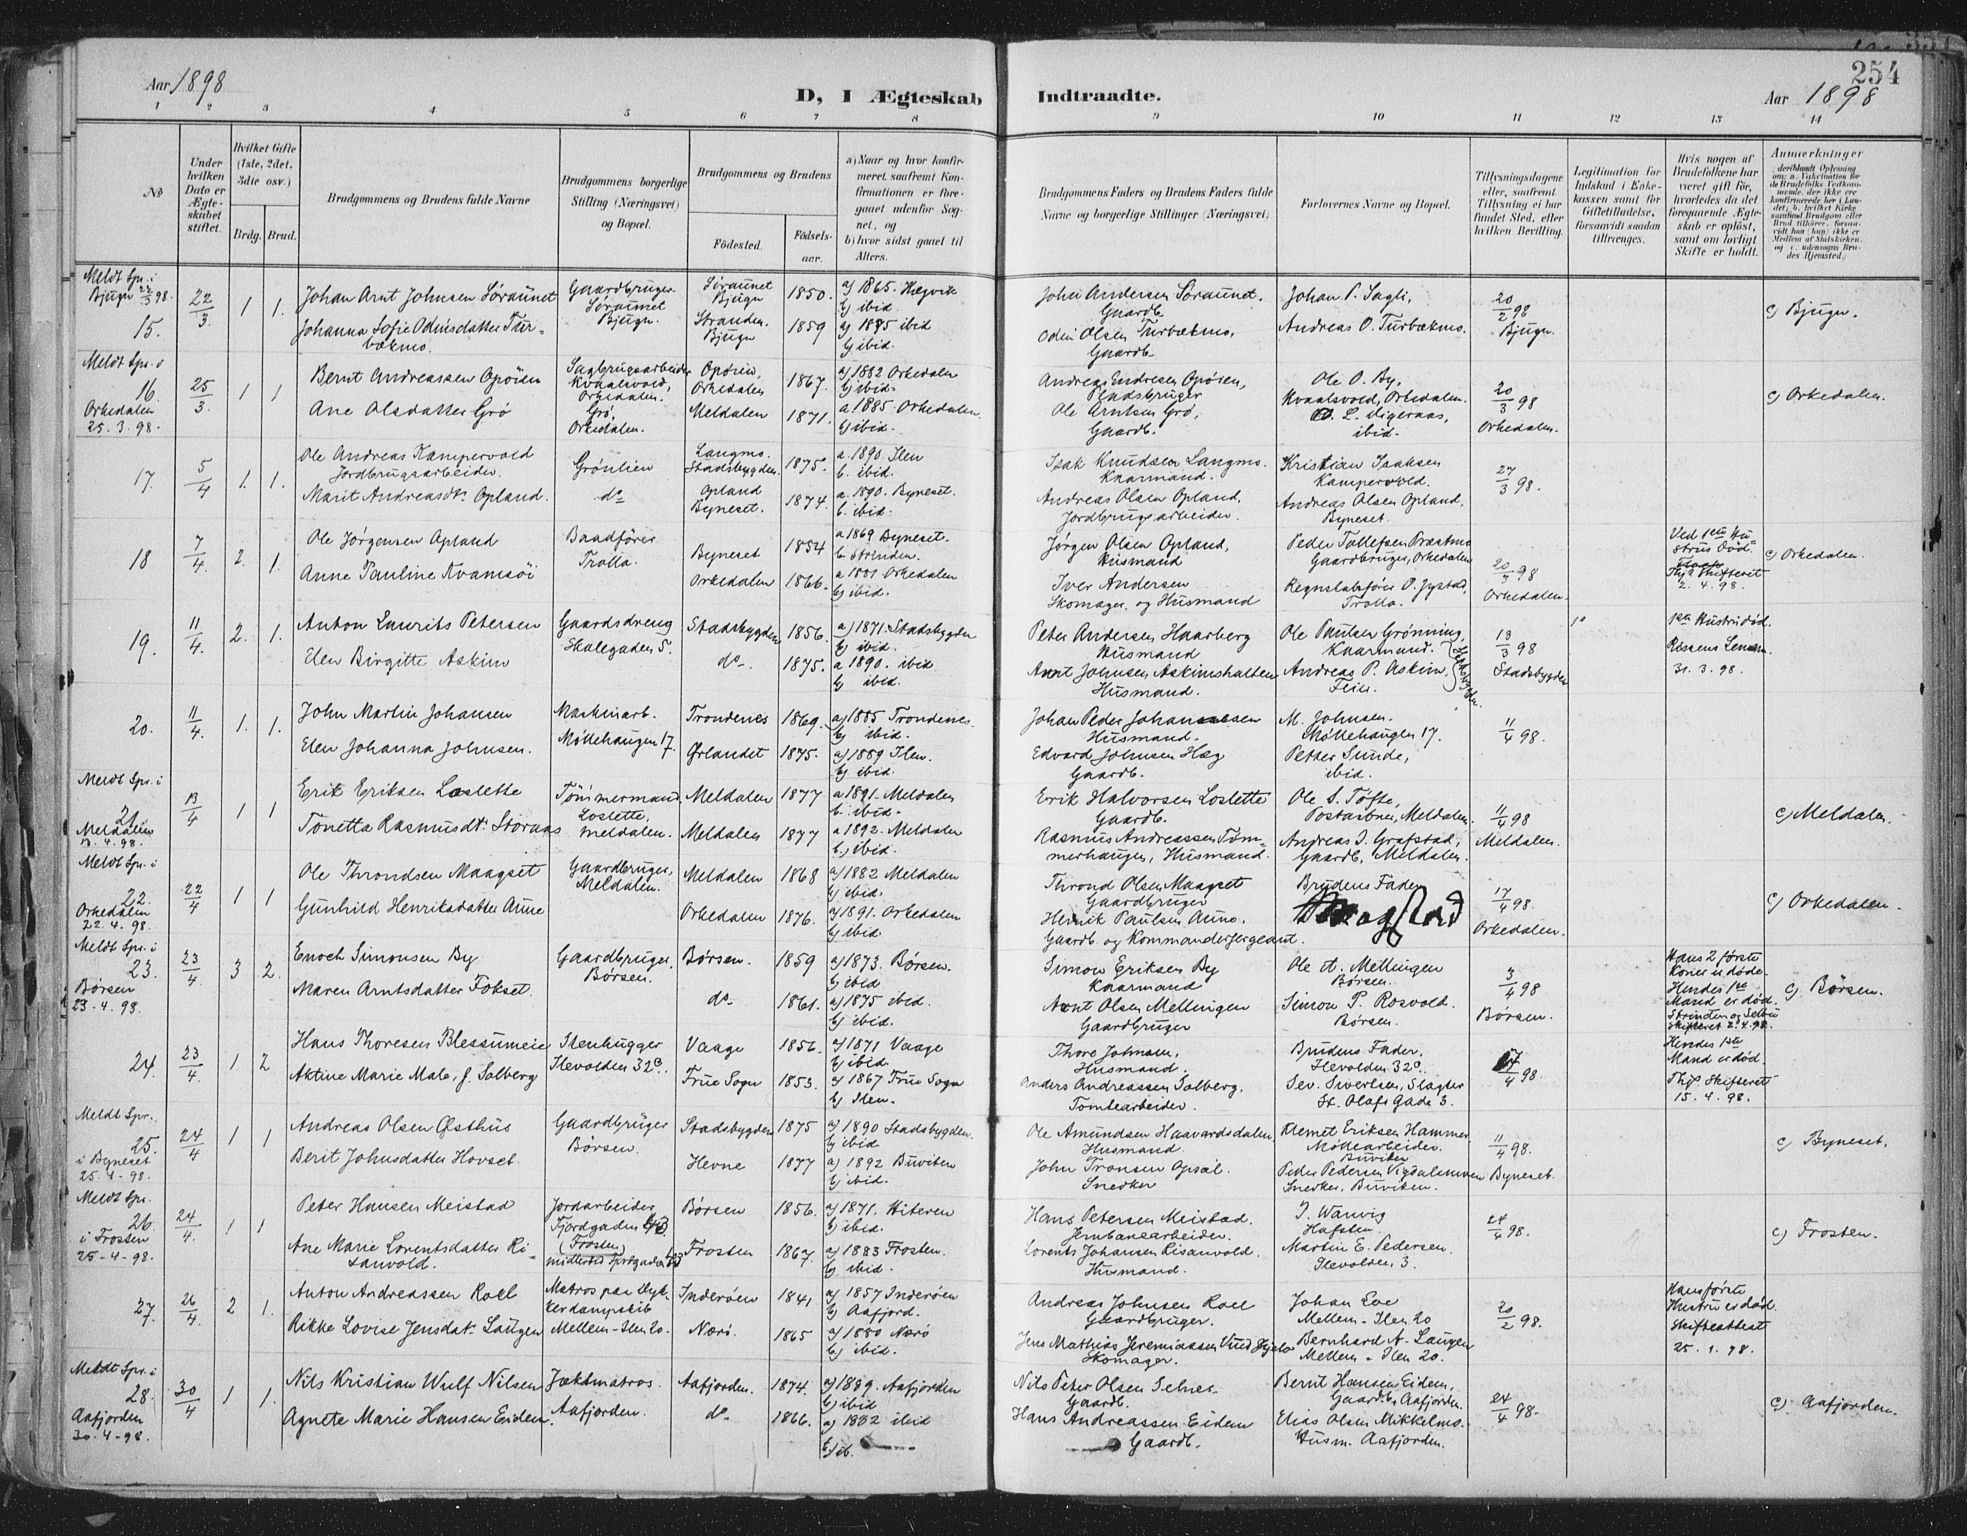 254
Aar 1898
D, I Ægteskab Indtraadte.
Aar 1898
1 2 3 4 5 6 7 8 9 10 11 12 13 14
No
Under hvilken Dato er Ægteskabet stiftet.
Hvilket Gifte (1ste, 2det, 3die osv.)
Brdg. Brud.
Brudgommens og Brudens fulde Navne
Brudgommens borgerlige Stilling (Næringsvei) og Bopæl.
Brudgommens og Brudens
Fødested. Fødselsaar.
a) Naar og hvor konfirmeret, saafremt Konfirmationen er foregaaet udenfor Sognet, og
b) hvor sidst gaaet til Alters.
Brudgommens Faders og Brudens Faders fulde Navne og borgerlige Stillinger (Næringsvei)
Forlovernes Navne og Bopæl.
Tillysningsdagene eller, saafremt Tillysning ei har fundet Sted, efter hvilken Bevilling.
Legitimation for Indskud i Enkekassen samt for Giftetilladelse, forsaavidt saadan tiltrænges.
Hvis nogen af Brudefolkene har været gift før, hvorledes da det foregaaende Ægteskab er opløst, samt om lovligt Skifte er holdt.
Anmerkninger
Meldt Spr. i Bjugn 22/3 98.
15. 22/3 1 1.
Johan Arnt Johnsen Søraunet
Gaardbruger Søraunet Bjugn.
Søraunet Bjugn 1850.
a) 1865. Hegvik b) ibid
John Andersen Søraunet. Gaardb.
Johan P. Sagli,
20/2 98 Bjugn.
c) Bjugn.
Johanna Sofie Odinsdatter Turbækmo.
Stranden. Bjugn 1859
a) 1875 ibid b) ibid.
Odin Olsen Turbækmo, Gaardb.
Andreas O. Turbækmo.
Meldt Spr. i Orkedalen 25.3.98.
16. 25/3 1 1
Bernt Andreassen Opöien
Sagbrugsarbeider Kvaalsvold, Orkedalen.
Opöien, Orkedalen 1867.
a) 1882 Orkedalen b) ibid.
Pladsbruger
Ole O. By, Kvaalsvold, Orkedalen.
20/3 98 Orkedalen.
c) Orkedalen.
Ane Olsdatter Grö
Grö, Orkedalen.
Meldalen 1871.
a. 1885. Orkedalen. b) ibid.
Ole Arntsen Grö, Gaardb.
L. Digeraas, ibid.
17. 5/4 1. 1.
Ole Andreas Kampervold Jordbrugsarbeider.
Grönlien
Langmo. Stadsbygden 1875.
a. 1890. Ilen b. ibid.
Isak Knudsen Langmo. Kaarmand.
Kristian Isaksen Kampervold.
27/3 98.
Marit Andreasdtr. Opland.
do
Opland Byneset. 1874.
a. 1890. Byneset. b. ibid.
Andreas Olsen Opland, Jordbrugsarbeider.
Andreas Olsen Opland, Byneset.
18 7/4 2. 1.
Ole Jørgensen Opland
Baadfører Trolla.
Byneset 1854
a 1869 Byneset. b Strinden.
Jørgen Olsen Opland, Husmand
Gaardbruger, Orkedalen
20/3 98 Orkedalen.
Ved 1ste Hustrus Død. Skifteret 2.4.98.
c) Orkedalen.
Anne Pauline Kvamsöi
Orkedalen 1866.
a. 1881 Orkedalen b) ibid.
Iver Andersen Skomager og Husmand
Regnskabsfører O. Jystad, Trolla.
19. 11/4 2. 1.
Anton Laurits Petersen
Gaardsdreng Skolegaden 5.
Stadsbygden 1856.
a) 1871. Stadsbygden b) ibid.
Peter Andersen Haarberg Husmand
Ole Paulsen Grönning, Kaarmand.
13/3 98 Stadsbygden
1ste Hustru død. Rissens Lensm. 31.3.98.
Elen Birgitte Askim
do. 1875.
a 1890. ibid b) ibid.
Arnt Johnsen Askimshalten Husmand.
Andreas P. Askim, Feier.
20. 11/4 1. 1.
John Martin Johansen
Maskinarb. Möllehaugen 17.
Trondenes 1869.
a) 1885 Trondenes. b) ibid.
Johan Peder Johannesen Husmand.
M. Johnsen. Möllehaugen 17.
11/4 98.
Elen Johanna Johnsen.
Ørlandet 1875.
a) 1889 Ilen. b) ibid.
Edvard Johnsen Hæg Gaardb.
Petter Sunde, ibid.
Meldt Spr. i Meldalen 13.4.98.
21. 13/4 1 1
Erik Eriksen Loslette
Tömmermand Loslette, Meldalen.
Meldalen 1877
a 1891. Meldalen b. ibid.
Erik Halvorsen Loslette Gaardb.
Ole S. Tofte, Postaabner, Meldalen
11/4 98 Meldalen.
c) Meldalen.
Tonetta Rasmusdtr. Storaas
Meldalen 1877
a 1892. Meldalen b) ibid.
Rasmus Andreassen Tømmerhaugen, Husmand.
Andreas I. Grafstad, Gaardb. Meldalen.
Meldt Spr. i Orkedalen 22.4.98.
22. 22/4 1 1
Ole Throndsen Maagset
Gaardbruger, Meldalen.
Meldalen 1868
a) 1882 Meldalen b) ibid.
Thrond Olsen Maagset Gaardbruger
Brudens Fader
17/4 98. Orkedalen.
c) Orkedalen.
Gunhild Henriksdatter Aune
Orkedalen 1876.
a) 1891. Orkedalen b) ibid.
Henrik Paulsen Aune. Gaardb. og Kommandersergeant.
Meldt Spr. i Börsen 23-4.98.
23. 23/4 3 2.
Enoch Simonsen By
Gaardbruger, Börsen.
Börsen. 1859
a) 1873. Börsen. b) ibid
Simon Eriksen By Kaarmand
Ole A. Mellingen Börsen.
3/4 98 Börsen.
Hans 2 første Koner er døde. Hendes 1ste Mand er død. Strinden og Selbu Skifteret 2.4.98.
c) Börsen.
Maren Arntsdatter Fokset.
do. 1861.
a) 1875 ibid. b) ibid.
Arnt Olsen Mellingen Gaardbruger
Simon P. Rosvold. Börsen.
24. 23/4 1 2
Hans Thoresen Blessumeie
Stenhugger Ilevolden 32c.
Vaage 1856.
a) 1871 Vaage b) ibid.
Thore Johnsen, Husmand.
Brudens Fader, Ilevolden 32c.
17/4 98.
Hendes 1ste Mand er død. Thj. Skifteret 15.4.98.
Aktine Marie Male, f. Solberg
Frue Sogn 1853.
a) 1867 Frue Sogn b) Ilen.
Anders Andreassen Solberg. Tomtearbeider.
Sev. Sivertsen, Slagter St. Olafs Gade 3.
Meldt Spr. i Byneset 25-4-98.
25. 24/4 1 1
Andreas Olsen Østhus
Gaardbruger Börsen.
Stadsbygden 1875
a) 1890 Stadsbygden. b) ibid.
Ole Amundsen Haavardsdalen Husmand.
Klemet Eriksen Hammer Möllearbeider. Buviken
11/4 98. Byneset.
c) Byneset.
Berit Johnsdatter Hovset.
Hevne 1877
a) 1892 Buviken b) ibid.
John Tronsen Opsal. Snedker
Peder Pedersen Vigdalsmoen Snedker, Buviken.
Meldt Spr. i Frosten 25-4-98.
26. 24/4 1 1
Peter Hansen Meistad
Jordarbeider, Fjordgaden 43 (Frosten, midlertid Fjordgaden 43
Börsen 1856.
a) 1871. Hiteren b) ibid.
Hans Petersen Meistad. Jernbanearbeider.
J. Wanvig Hafsten.
24/4 98.
c) Frosten.
Ane Marie Lorentsdatter Risanvold.
Frosten 1867
a) 1883 Frosten. b) ibid.
Lorents Johansen Risanvold. Husmand.
Martin E. Pedersen. Ilevolden, 3.
27. 26/4 2 1.
Anton Andreassen Roel
Matros paa Dykkerdampskib Mellem-Ilen 20.
Inderøen 1841
a) 1857 Inderøen b) Aafjord.
Andreas Johnsen Roel Gaardbruger.
Johan Loe Mellem-Ilen 20
20/2 98.
Hans første Hustru er død. Skifteattest 25.1.98.
Rikke Lovise Jensdatr. Laugen
Nærö. 1865
a) 1880 Nærö b) ibid.
Jens Mathias Jeremiassen Skomager.
Bernhard A. Laugen Mellem-Ilen 20.
Meldt Spr. i Aafjorden 30-4-98.
28. 30/4 1 1.
Nils Kristian Wulf Nilsen
Jæktmatros. Aafjorden.
Aafjorden. 1874.
a) 1889. Aafjorden b) ibid
Nils Peter Olsen Selnes Gaardb.
Bernt Hansen Eidem, Gaardb. Aafjorden.
24/4 98.
c) Aafjorden.
Agnete Marie Hansen Eidem.
do. 1866.
a) 1882 ibid b) ib.
Hans Andreassen Eidem Gaardb.
Elias Olsen Mikkelmo. Husm. Aafjorden.